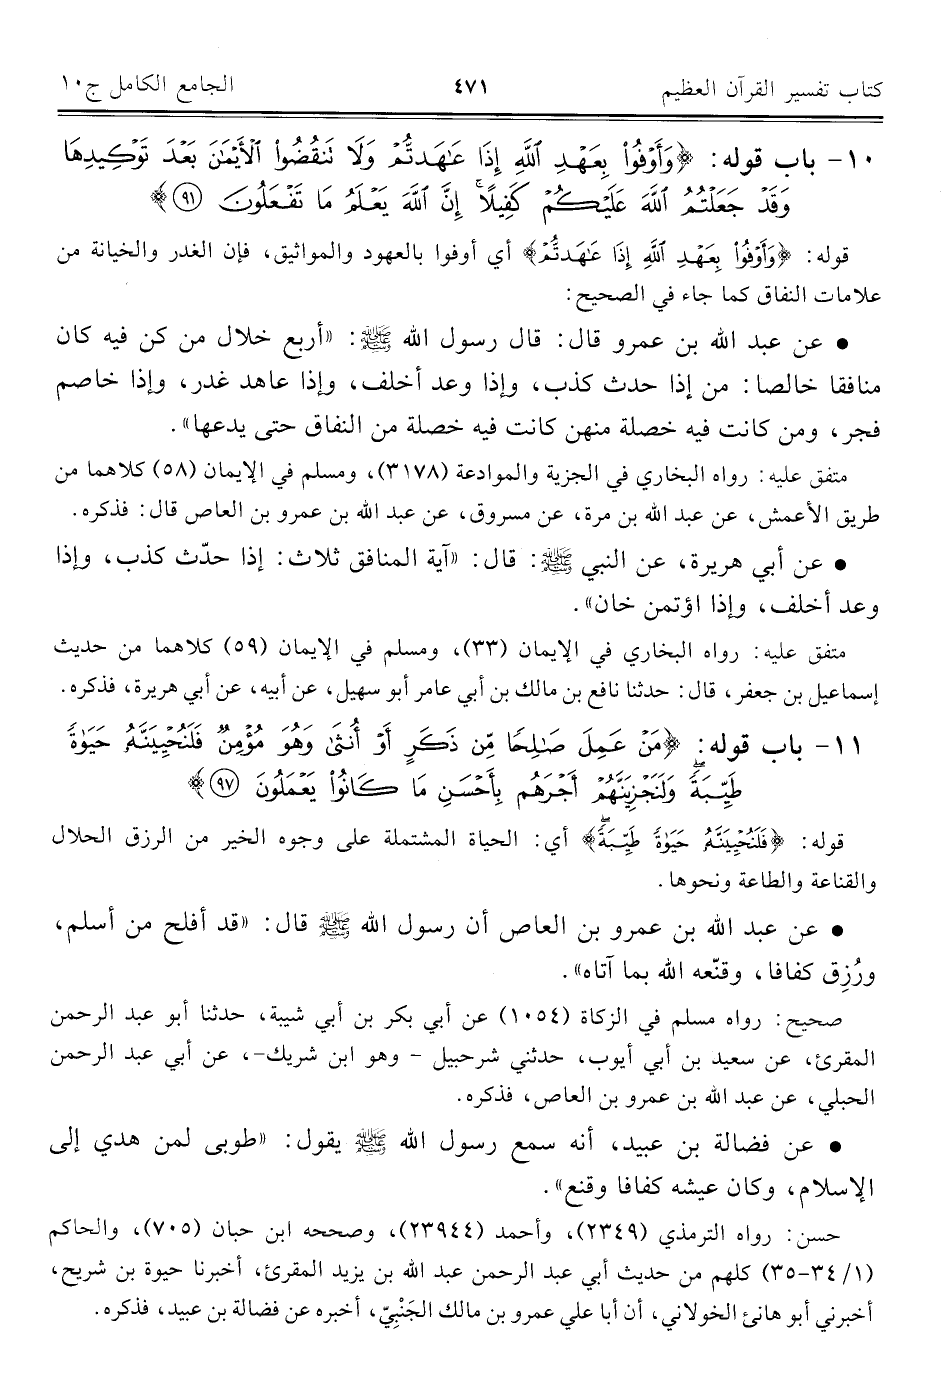 كتاب تفسير القرآن العظيم ٤٧١ الجامع الكامل ج١٠
١٠- باب قوله: ﴿وَأَوۡفُواْ بِعَهۡدِ ٱللَّهِ إِذَا عَٰهَدتُّمۡ وَلَا تَنقُضُواْ ٱلۡأَيۡمَٰنَ بَعۡدَ تَوۡكِيدِهَا
وَقَدۡ جَعَلۡتُمُ ٱللَّهَ عَلَيۡكُمۡ كَفِيلًاۚ إِنَّ ٱللَّهَ يَعۡلَمُ مَا تَفۡعَلُونَ ٩١﴾
قوله: ﴿وَأَوۡفُواْ بِعَهۡدِ ٱللَّهِ إِذَا عَٰهَدتُّمۡ﴾ أي أوفوا بالعهود والمواثيق، فإن الغدر والخيانة من
علامات النفاق كما جاء في الصحيح:
• عن عبد الله بن عمرو قال: قال رسول الله ﷺ: «أربع خلال من كن فيه كان
منافقا خالصا: من إذا حدث كذب، وإذا وعد أخلف، وإذا عاهد غدر، وإذا خاصم
فجر، ومن كانت فيه خصلة منهن كانت فيه خصلة من النفاق حتى يدعها».
متفق عليه: رواه البخاري في الجزية والموادعة (٣١٧٨)، ومسلم في الإيمان (٥٨) كلاهما من
طريق الأعمش، عن عبد الله بن مرة، عن مسروق، عن عبد الله بن عمرو بن العاص قال: فذكره.
• عن أبي هريرة، عن النبي ﷺ: قال: «آية المنافق ثلاث: إذا حدّث كذب، وإذا
وعد أخلف، وإذا اؤتمن خان».
متفق عليه: رواه البخاري في الإيمان (٣٣)، ومسلم في الإيمان (٥٩) كلاهما من حديث
إسماعيل بن جعفر، قال: حدثنا نافع بن مالك بن أبي عامر أبو سهيل، عن أبيه، عن أبي هريرة، فذكره.
١١- باب قوله: ﴿مَنۡ عَمِلَ صَٰلِحٗا مِّن ذَكَرٍ أَوۡ أُنثَىٰ وَهُوَ مُؤۡمِنٞ فَلَنُحۡيِيَنَّهُۥ حَيَوٰةٗ
طَيِّبَةٗۖ وَلَنَجۡزِيَنَّهُمۡ أَجۡرَهُم بِأَحۡسَنِ مَا كَانُواْ يَعۡمَلُونَ ٩٧﴾
قوله: ﴿فَلَنُحۡيِيَنَّهُۥ حَيَوٰةٗ طَيِّبَةٗۖ﴾ أي: الحياة المشتملة على وجوه الخير من الرزق الحلال
والقناعة والطاعة ونحوها.
• عن عبد الله بن عمرو بن العاص أن رسول الله ﷺ قال: «قد أفلح من أسلم،
ورُزِق كفافا، وقنّعه الله بما آتاه».
صحيح: رواه مسلم في الزكاة (١٠٥٤) عن أبي بكر بن أبي شيبة، حدثنا أبو عبد الرحمن
المقرئ، عن سعيد بن أبي أيوب، حدثني شرحبيل - وهو ابن شريك-، عن أبي عبد الرحمن
الحبلي، عن عبد الله بن عمرو بن العاص، فذكره.
• عن فضالة بن عبيد، أنه سمع رسول الله ﷺ يقول: «طوبى لمن هدي إلى
الإسلام، وكان عيشه كفافا وقنع».
حسن: رواه الترمذي (٢٣٤٩)، وأحمد (٢٣٩٤٤)، وصححه ابن حبان (٧٠٥)، والحاكم
(١/ ٣٤-٣٥) كلهم من حديث أبي عبد الرحمن عبد الله بن يزيد المقرئ، أخبرنا حيوة بن شريح،
أخبرني أبو هانئ الخولاني، أن أبا علي عمرو بن مالك الجَنْبِيّ، أخبره عن فضالة بن عبيد، فذكره.